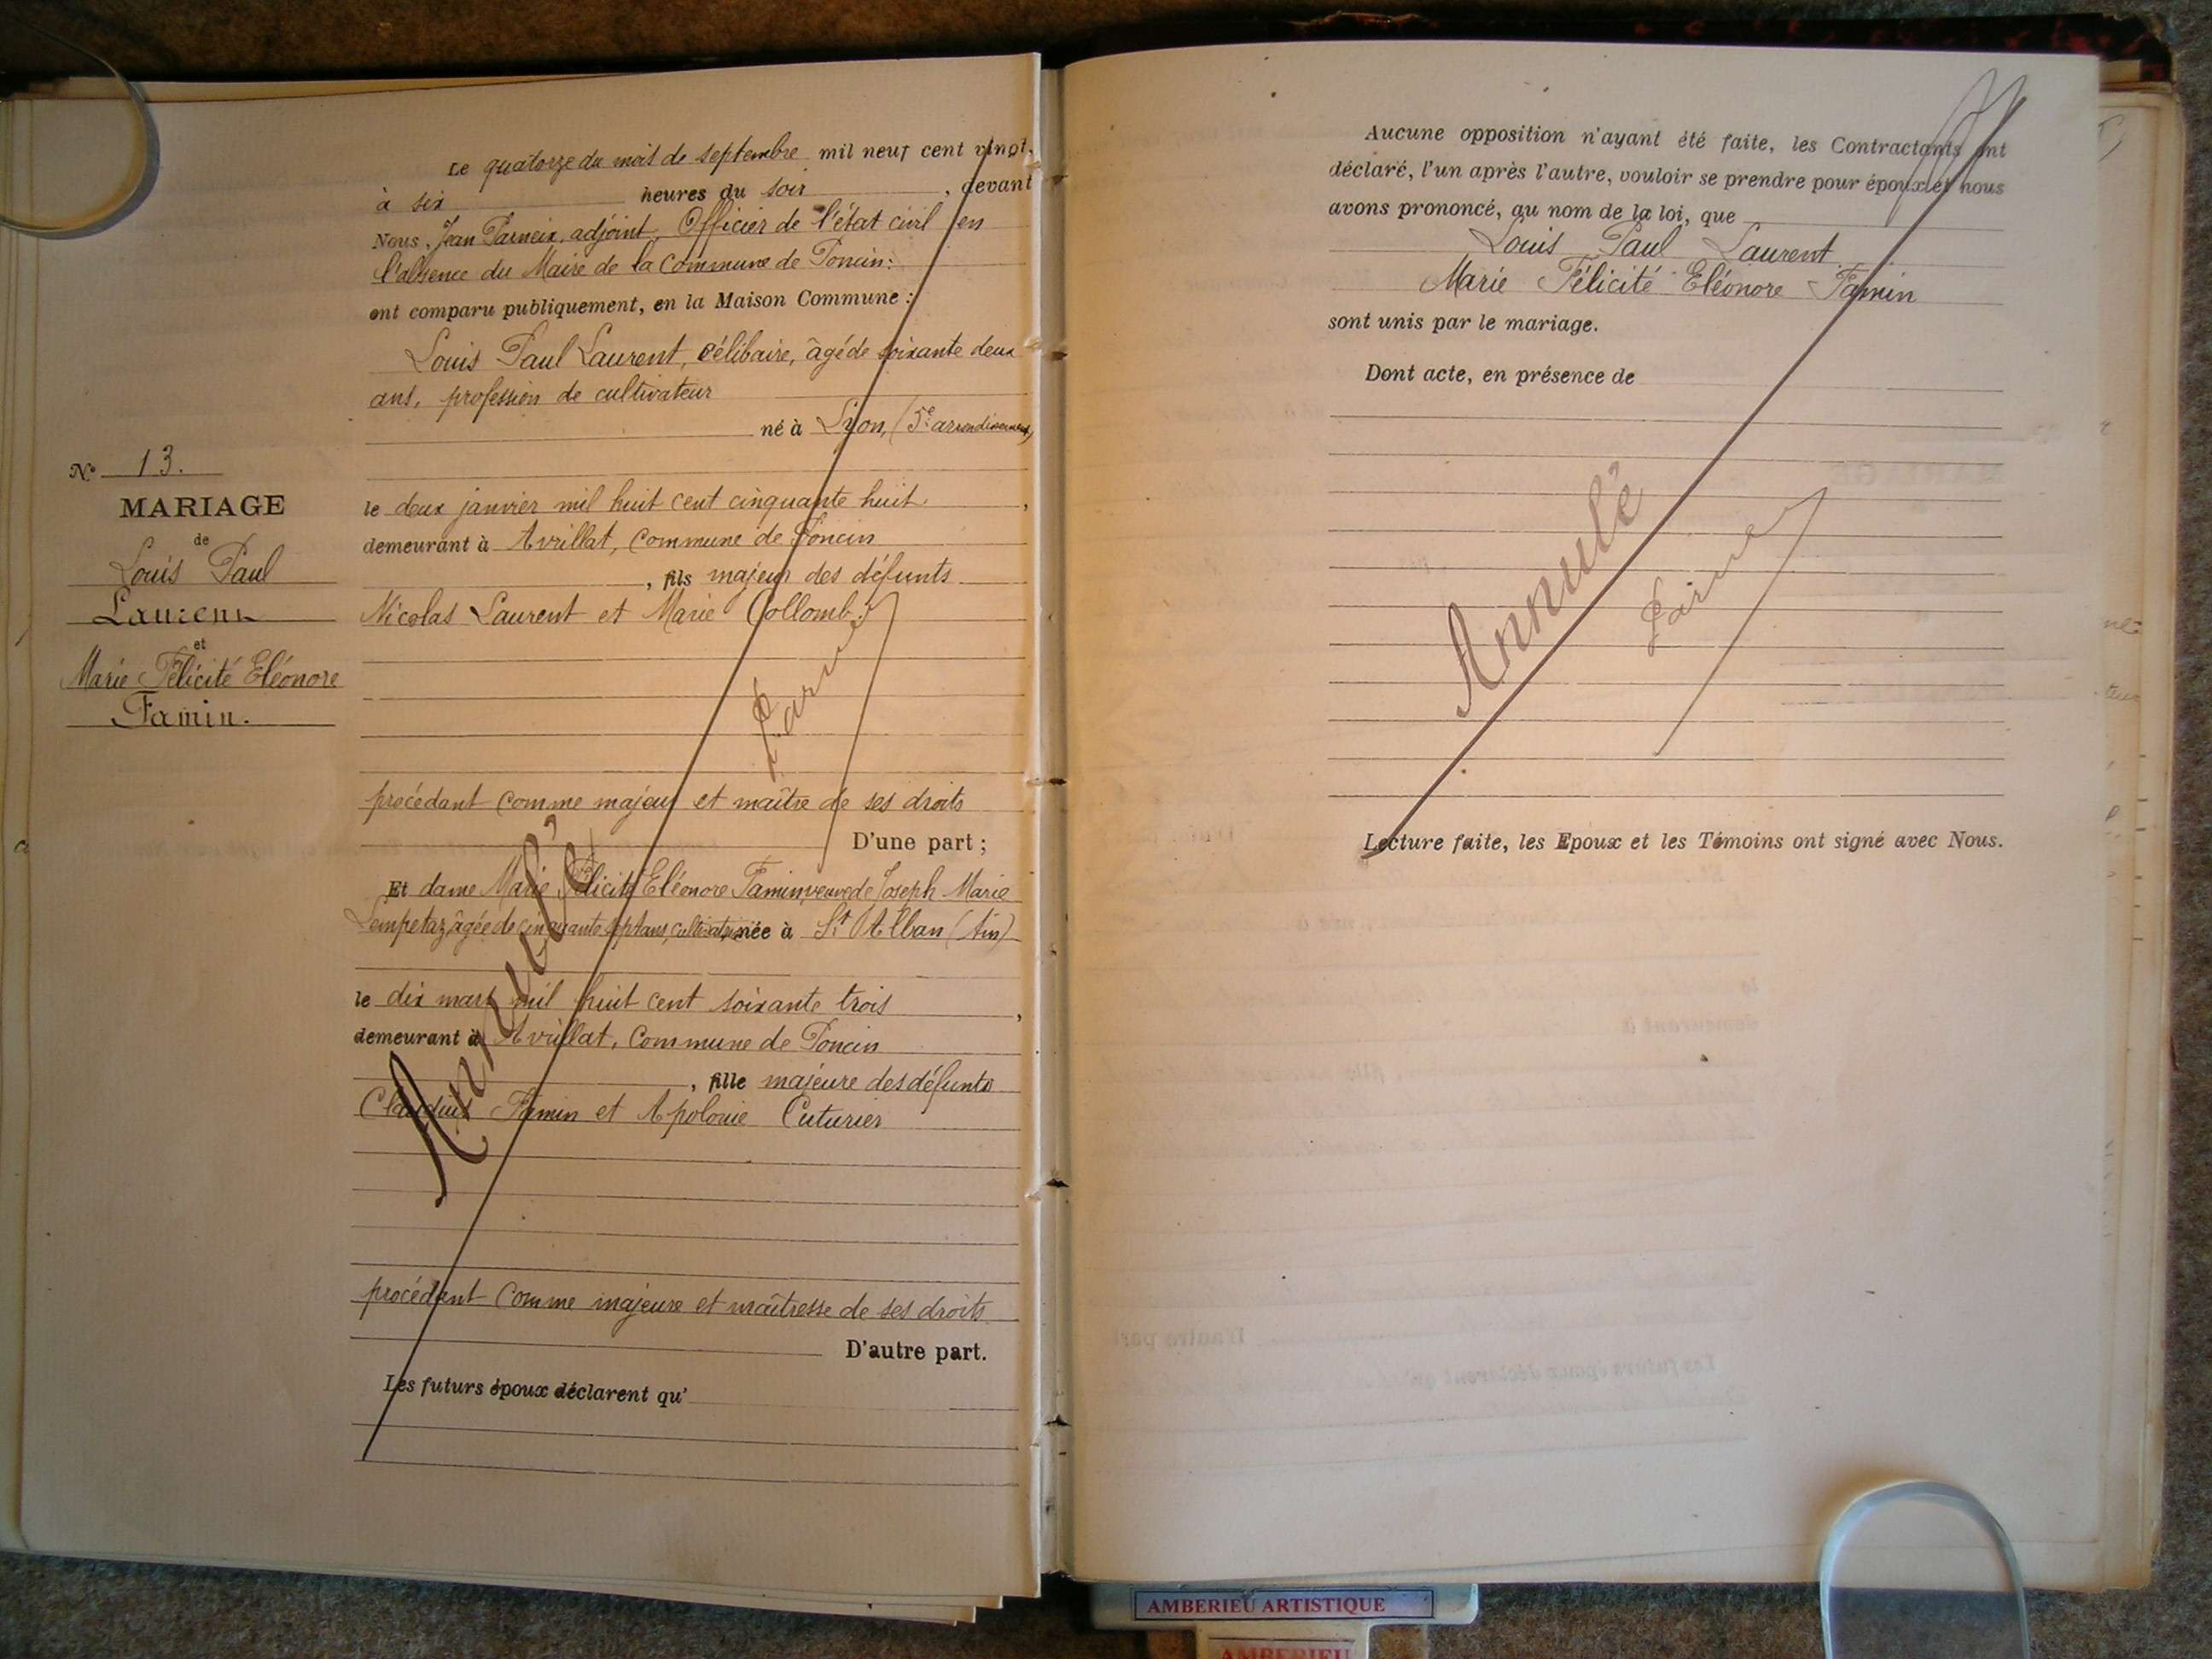 Le quatorze du mois de septembre mil neuf cent vingt,
à six heures du soir, devant
Nous, Jean adjoint, Officier de l'état civil en
l'absence du Maire de la Commune de Poncin:
ont comparu publiquement, en la Maison Commune :
Louis Paul Laurent, célibaire, âgé de soixante deux
ans, profession de cultivateur
né à Lyon, (5e arrondissement)
le deux janvier mil huit cent cinquante huit,
demeurant à Avrillat, Commune de Poncin
, fils majeur des défunts
Nicolas Laurent et Marie Collomb:
procédant comme majeur et maître de ses droits
D'une part ;
Et dame Marie Félicité Eléonore Famin, veuve de Joseph Marie
Lempetaz, âgée de cinquante sept ans, cultivatrice née à St Alban (Ain)
le dix mars mil huit cent soixante trois,
demeurant à Avrillat, Commune de Poncin
, fille majeure des défunts
Claudius Famin et Apolonie Cuturier
procédant comme majeure et maîtresse de ses droits
D'autre part.
Les futurs époux déclarent qu'
Annulé
No 13.
MARIAGE
de
Louis Paul
Laurent
et
Marie Félicité Eléonore
Famin.
Aucune opposition n'ayant été faite, les Contractants ont
déclaré, l'un après l'autre, vouloir se prendre pour époux et nous
avons prononcé, au nom de la loi, que
Louis Paul Laurent
Marie Félicité Eléonore Famin
sont unis par le mariage.
Dont acte, en présence de
Annulé
Lecture faite, les Epoux et les Témoins ont signé avec Nous.
AMBERIEU ARTISTIQUE
AMBERIEU